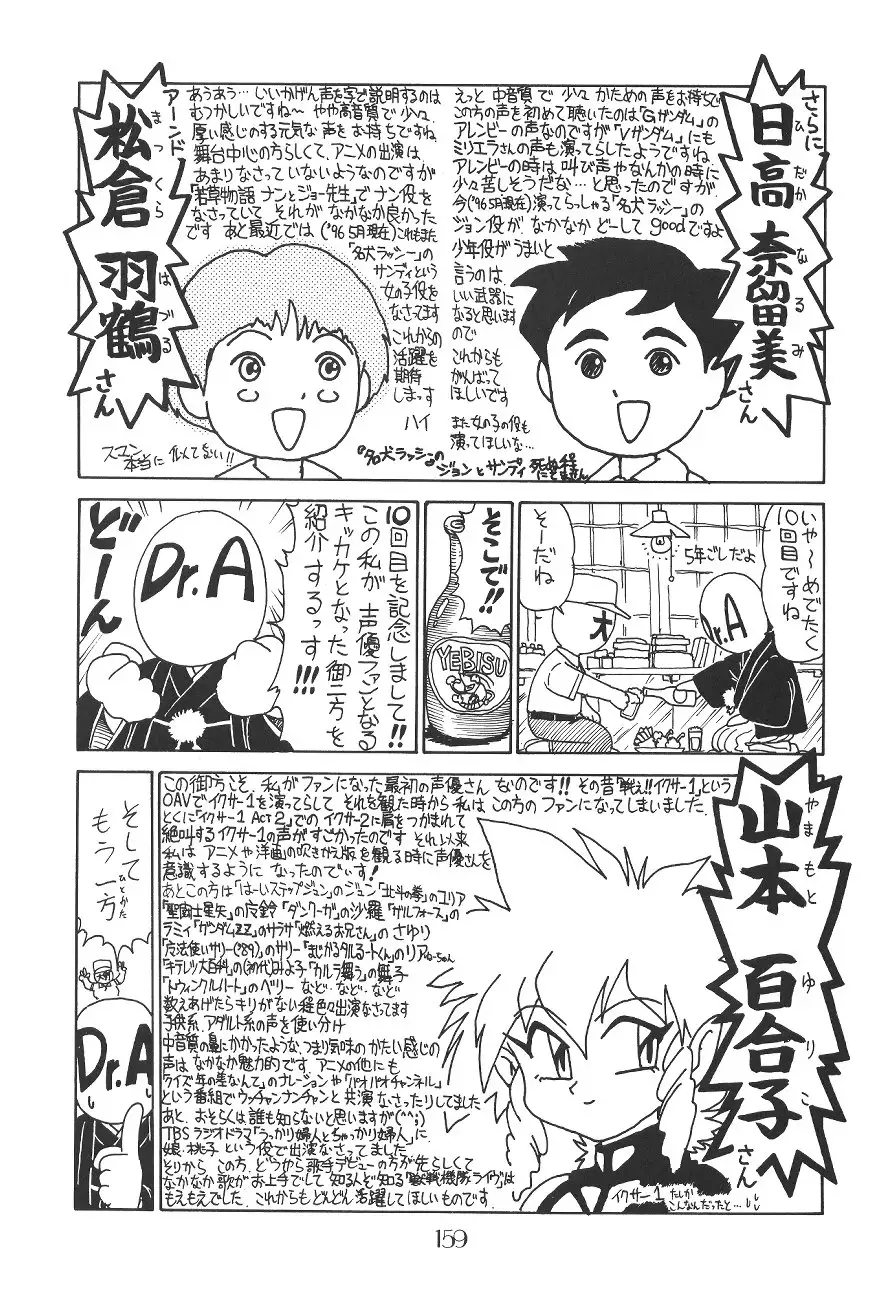 さらに
日高 奈留美さん
ひ だか な る み
えっと 中音質で 少々 かための 声をお持ちで
この方の声を初めて聴いたのは「Gガンダム」の
アレンビーの声なのですが「Vガンダム」にも
ミリエラさんの声も演ってらしたようですね
アレンビーの時は 叫び声やなんかの時に
少々苦しそうだな…と思ったのですが
今('96 5月現在)演ってらっしゃる「名犬ラッシー」の
ジョン役が なかなか どーして goodですよ
少年役がうまいと
言うのは
いい武器に
なると思います
ので
これからも
がんばって
ほしいです
また女の子の役も
演ってほしいな…
アーンド
松倉 羽鶴さん
まつ くら は づる
あうあう…いいかげん声を字で説明するのは
むつかしいですね〜 やや高音質で少々、
厚い感じのする元気な声をお持ちですね
舞台中心の方らしくて、アニメの出演は
あまりなさっていないようなのですが
「若草物語 ナンとジョー先生」でナン役を
なさっていて それが なかなか良かった
です あと最近では('96 5月現在)これもまた
「名犬ラッシー」の
サンディという
女の子役を
なさってます
これからの
活躍を
期待
しまっす
ハイ
「名犬ラッシー」の
ジョンとサンディ
スマン
本当に 似てない!!
いや〜めでたく
10回目ですね
5年ごしだよ
そーだね
大
Dr.A
そこで!!
YEBISU
10回目を記念しまして!!
この私が 声優ファンとなる
キッカケとなった御二方を
紹介するっす!!!
Dr.A
どーん
山本 百合子さん
やま もと ゆ り こ
この御方こそ、私がファンになった最初の声優さん なのです!! その昔「戦え!!イクサー1」という
OAVでイクサー1を演ってらして それを観た時から 私は この方の ファンになってしまいました
とくに「イクサー1 Act2」での イクサー2に肩をつかまれて
絶叫するイクサー1の声がすごかったのです それ以来
私は アニメや洋画の吹きかえ版を観る時に声優さんを
意識するように なったのでぃす!
あとこの方は「はーいステップジュン」のジュン「北斗の拳」のユリア
「聖闘士星矢」の「ダンクーガ」の沙羅「ガルフォース」の
ラミィ「ガンダムZZ」のサラサ「燃えるお兄さん」の さゆり
「魔法使いサリー('89)」のサリー「まじかるタルるートくん」のリア
「キテレツ大百科」の(初代)みよ子「カルラ舞う」の舞子
「トウィンクルハート」のベリー など…など…など
数えあげたらキリがない程色々出演なさってます
子供系、アダルト系の声を使い分け
中音質の量にかかったような、つまり気味の かたい感じの
声は なかなか魅力的です アニメの他にも
「クイズ年の差なんて」のナレーションや「パオパオチャンネル」
という番組でウッチャンナンチャンと 共演 なさったりしてました
あと、おそらくは誰も知らないと思いますが(^^;)
TBSラジオドラマ「うっかり婦人とちゃっかり婦人」に
娘、桃子という役で出演なさってました
それから この方、どうやら歌手デビューの方が先らしくて
なかなか歌が お上手でして 知る人ぞ知る「獣戦機隊ライヴ」は
もえもえでした。これからもどんどん活躍してほしいものです。
イクサー1 たしか
こんなんだったと…
そして
もう一方
ひとかた
Dr.A
159